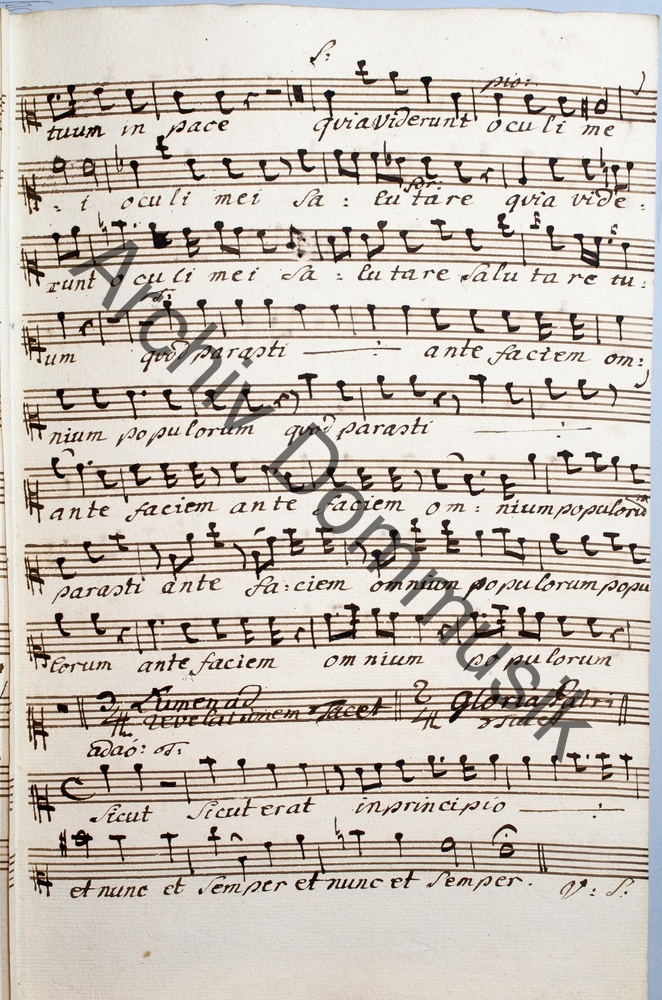 f:
pio:
tuum in pace quia viderunt oculi me
- i oculi mei sa: lu tare quia vide:
for:
runt oculi mei sa: lu tare salu ta re tu:
um quod parasti ante faciem om:
nium populorum quod parasti
ante faciem ante faciem om: nium populorū
parasti ante fa:ciem omnium populorum popu
lorum ante faciem omnium populorum
3/4 Lumen ad revelationem Tacet 2/4 Gloria Patri
adaō: T:
Sicut Sicut erat in principio
et nunc et semper et nunc et semper. V: S:
Archiv Dommusik